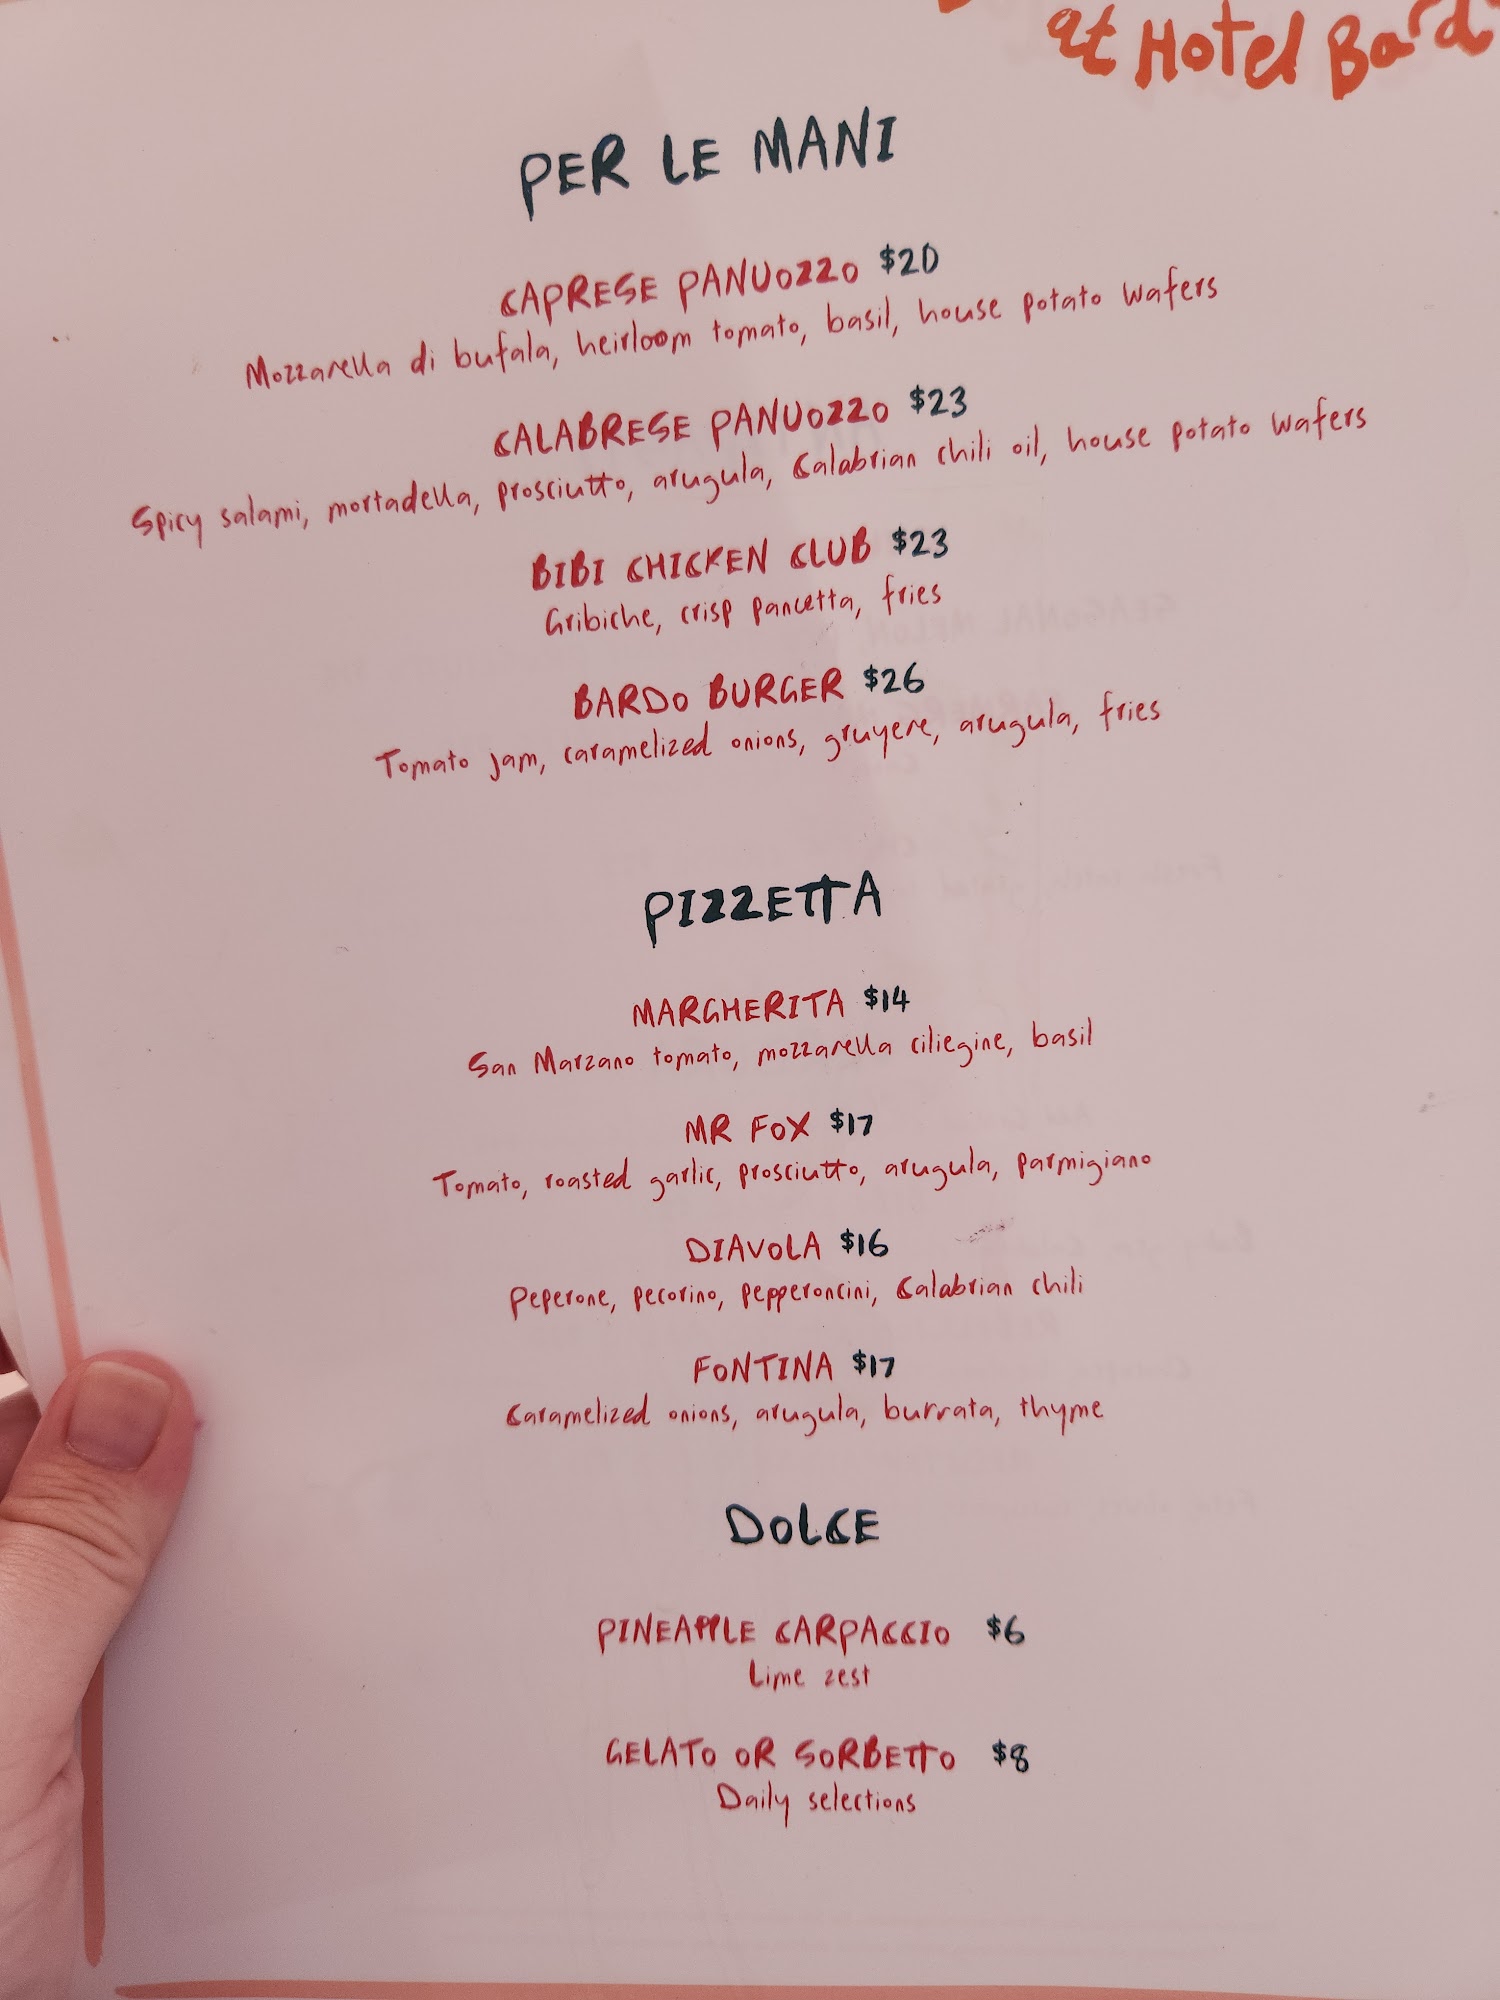 at Hotel Bard
PER LE MANI
CAPRESE PANUOZZO $20
Mozzarella di bufala, heirloom tomato, basil, house potato wafers
CALABRESE PANUOZZO $23
Spicy salami, mortadella, prosciutto, arugula, Calabrian chili oil, house potato wafers
BIBI CHICKEN CLUB $23
Gribiche, crisp pancetta, fries
BARDO BURGER $26
Tomato jam, caramelized onions, gruyere, arugula, fries
PIZZETTA
MARGHERITA $14
San Marzano tomato, mozzarella ciliegine, basil
MR FOX $17
Tomato, roasted garlic, prosciutto, arugula, parmigiano
DIAVOLA $16
Peperone, pecorino, pepperoncini, Calabrian chili
FONTINA $17
Caramelized onions, arugula, burrata, thyme
DOLCE
PINEAPPLE CARPACCIO $6
Lime zest
GELATO OR SORBETTO $8
Daily selections